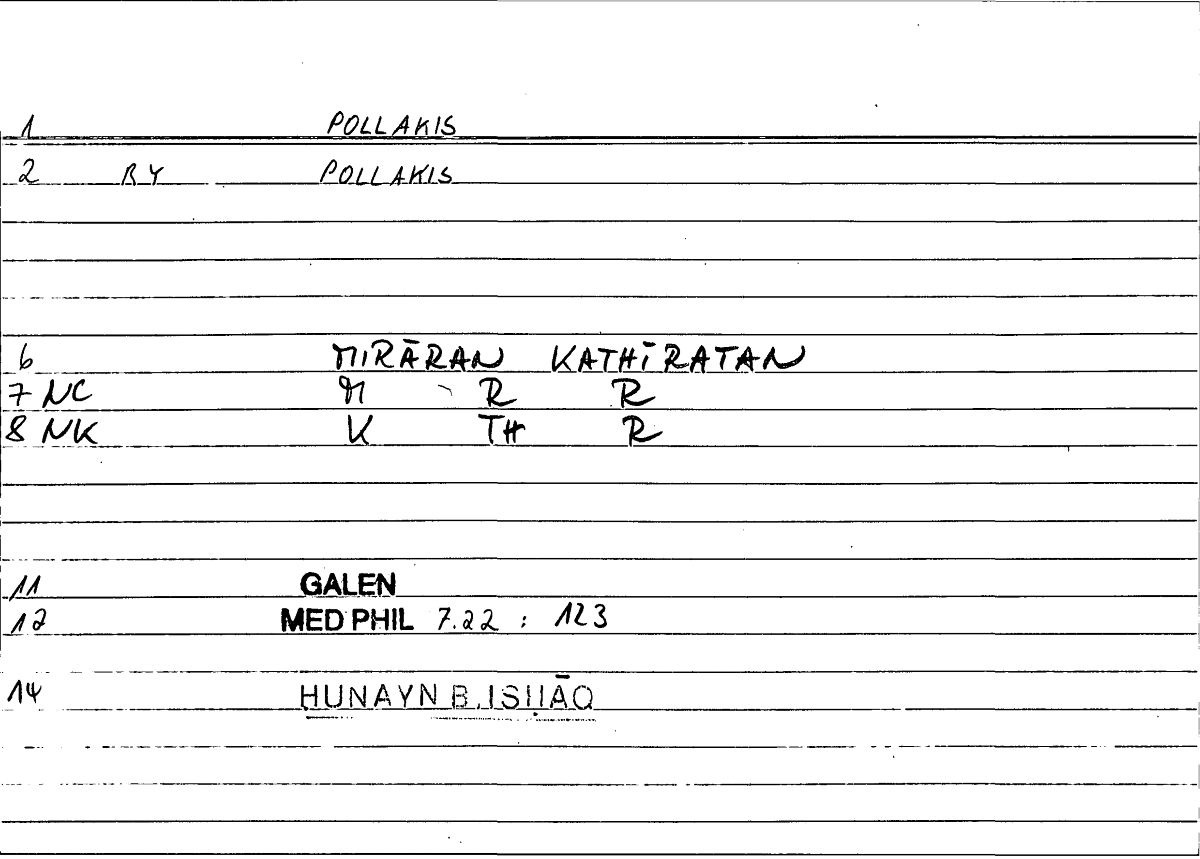 1 POLLAKIS
2 RY POLLAKIS
6 MIRĀRAN KATHĪRATAN
7 NC M R R
8 NK K TH R
11 GALEN
12 MED PHIL 7.22 : 123
14 ḤUNAYN B. ISḤĀQ